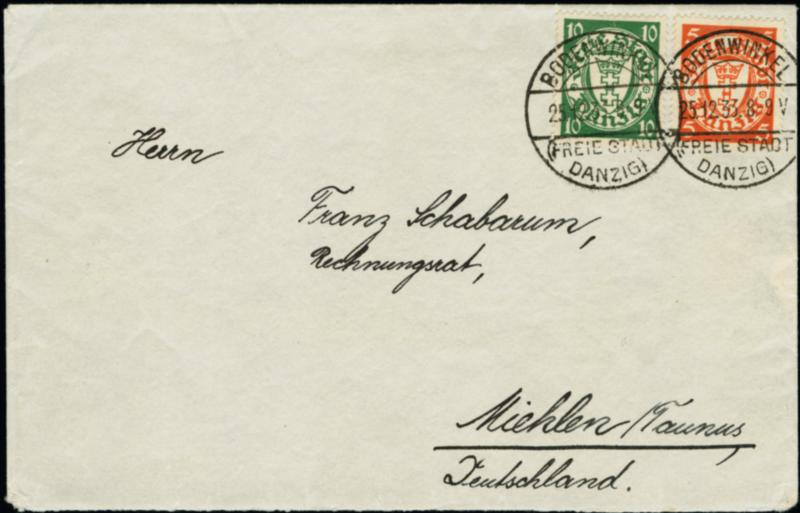 10 10
10 10
Danzig
5 5
5 5
Danzig
BODENWINKEL
25.
(FREIE STADT
DANZIG)
BODENWINKEL
25.12.33. 8-9 V
(FREIE STADT
DANZIG)
Herrn
Franz Schabarum,
Rechnungsrat,
Miehlen/Taunus,
Deutschland.